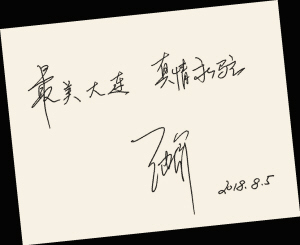 最美大连 真情永驻
2018.8.5